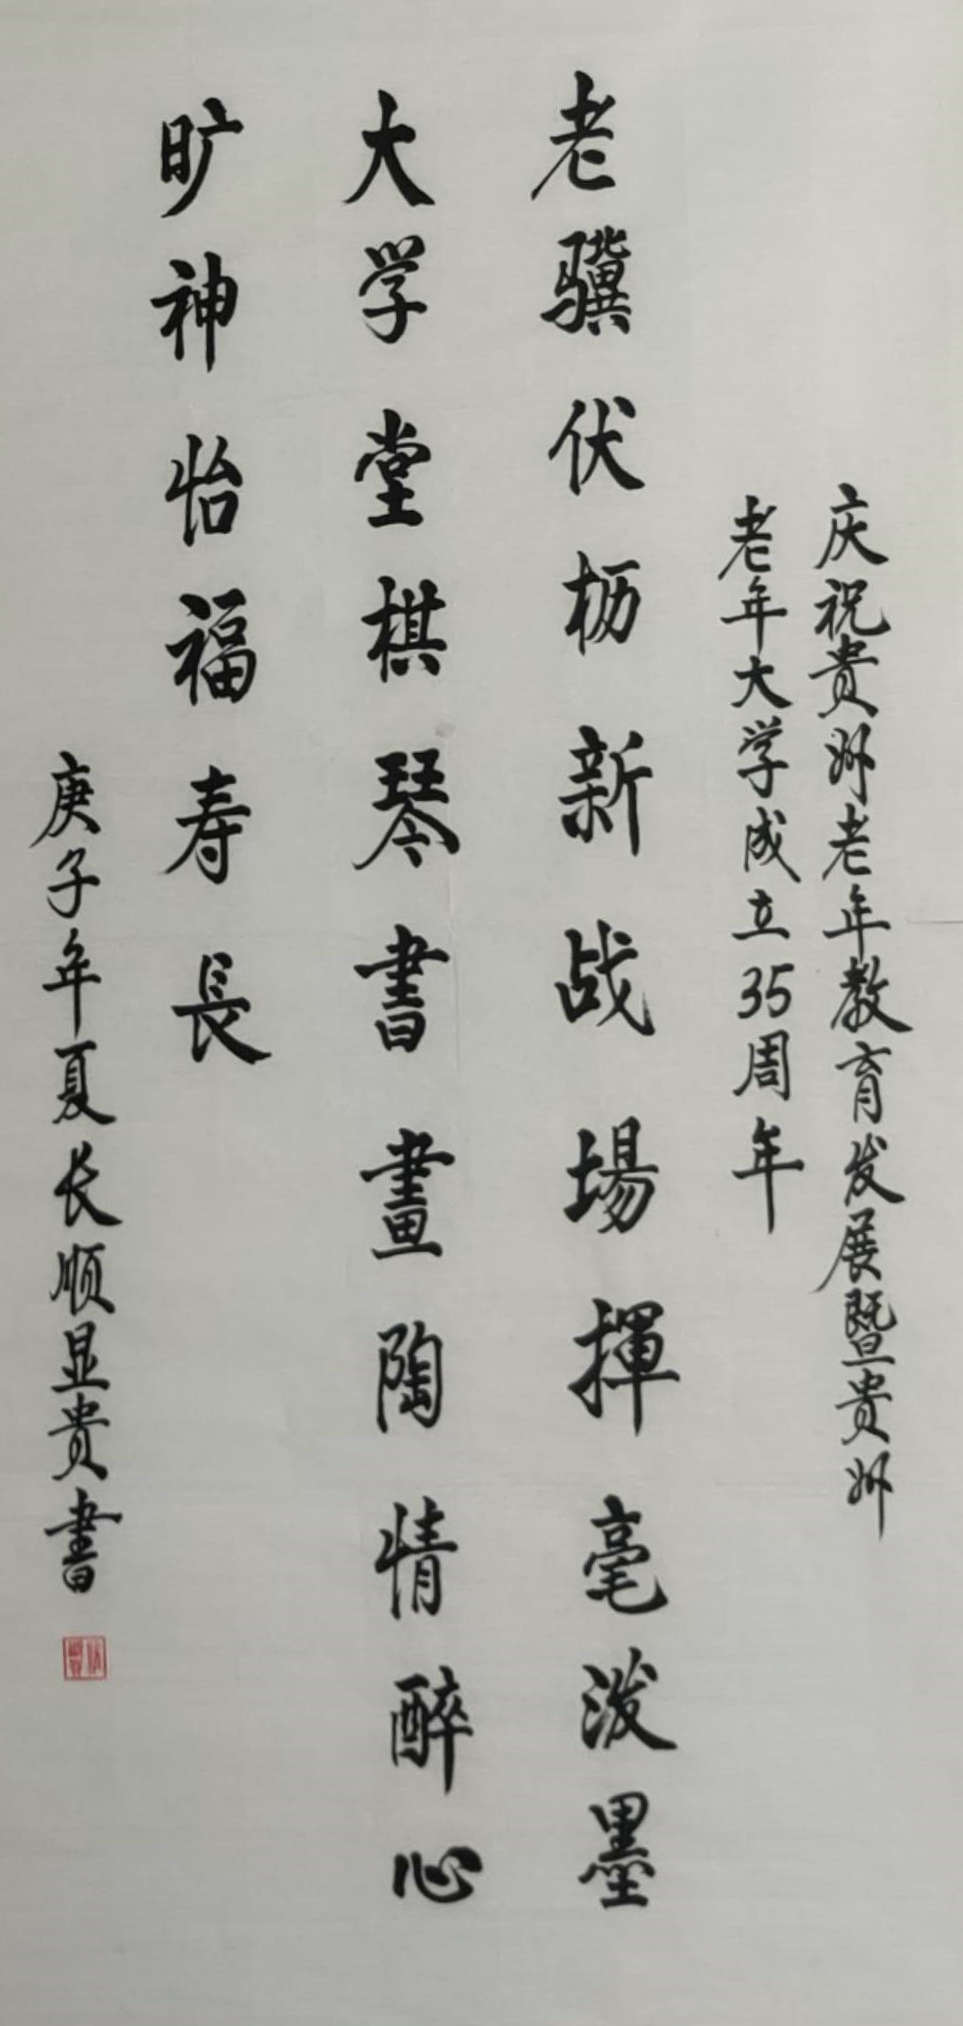 庆祝贵州老年教育发展暨贵州
老年大学成立35周年
老骥伏枥新战場揮毫泼墨
大学堂棋琴書畫陶情醉心
旷神怡福寿長
庚子年夏长顺显贵書